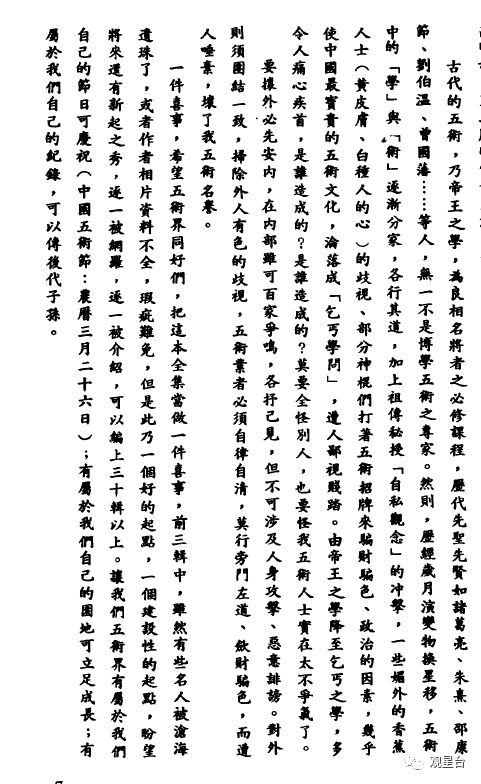 古代的五術，乃帝王之學，為良相名將者之必修課程，歷代先聖先賢如諸葛亮、朱熹、邵康
節、劉伯溫、曾國藩……等人，無一不是博學五術之專家。然則，歷經歲月演變物換星移，五術
中的「學」與「術」逐漸分家，各行其道，加上祖傳秘授「自私觀念」的沖擊，一些媚外的香蕉
人士（黃皮膚、白種人的心）的歧視、部分神棍們打著五術招牌來騙財騙色、政治的因素，幾乎
使中國最寶貴的五術文化，淪落成「乞丐學問」，遭人鄙視賤踏。由帝王之學降至乞丐之學，多
令人痛心疾首，是誰造成的？是誰造成的？莫要全怪別人，也要怪我五術人士實在太不爭氣了。
要攘外必先安內，在內部雖可百家爭鳴，各抒己見，但不可涉及人身攻擊、惡意誹謗。對外
則須團結一致，掃除外人有色的歧視，五術業者必須自律自清，莫行旁門左道、歛財騙色，而遭
人唾棄，壞了我五術名譽。
一件喜事，希望五術界同好們，把這本全集當做一件喜事，前三輯中，雖然有些名人被滄海
遺珠了，或者作者相片資料不全，瑕疵難免，但是此乃一個好的起點，一個建設性的起點，盼望
將來還有新起之秀，逐一被網羅，逐一被介紹，可以編上三十輯以上。讓我們五術界有屬於我們
自己的節日可慶祝（中國五術節：農曆三月二十六日）；有屬於我們自己的園地可立足成長；有
屬於我們自己的紀錄，可以傳後代子孫。
观星台